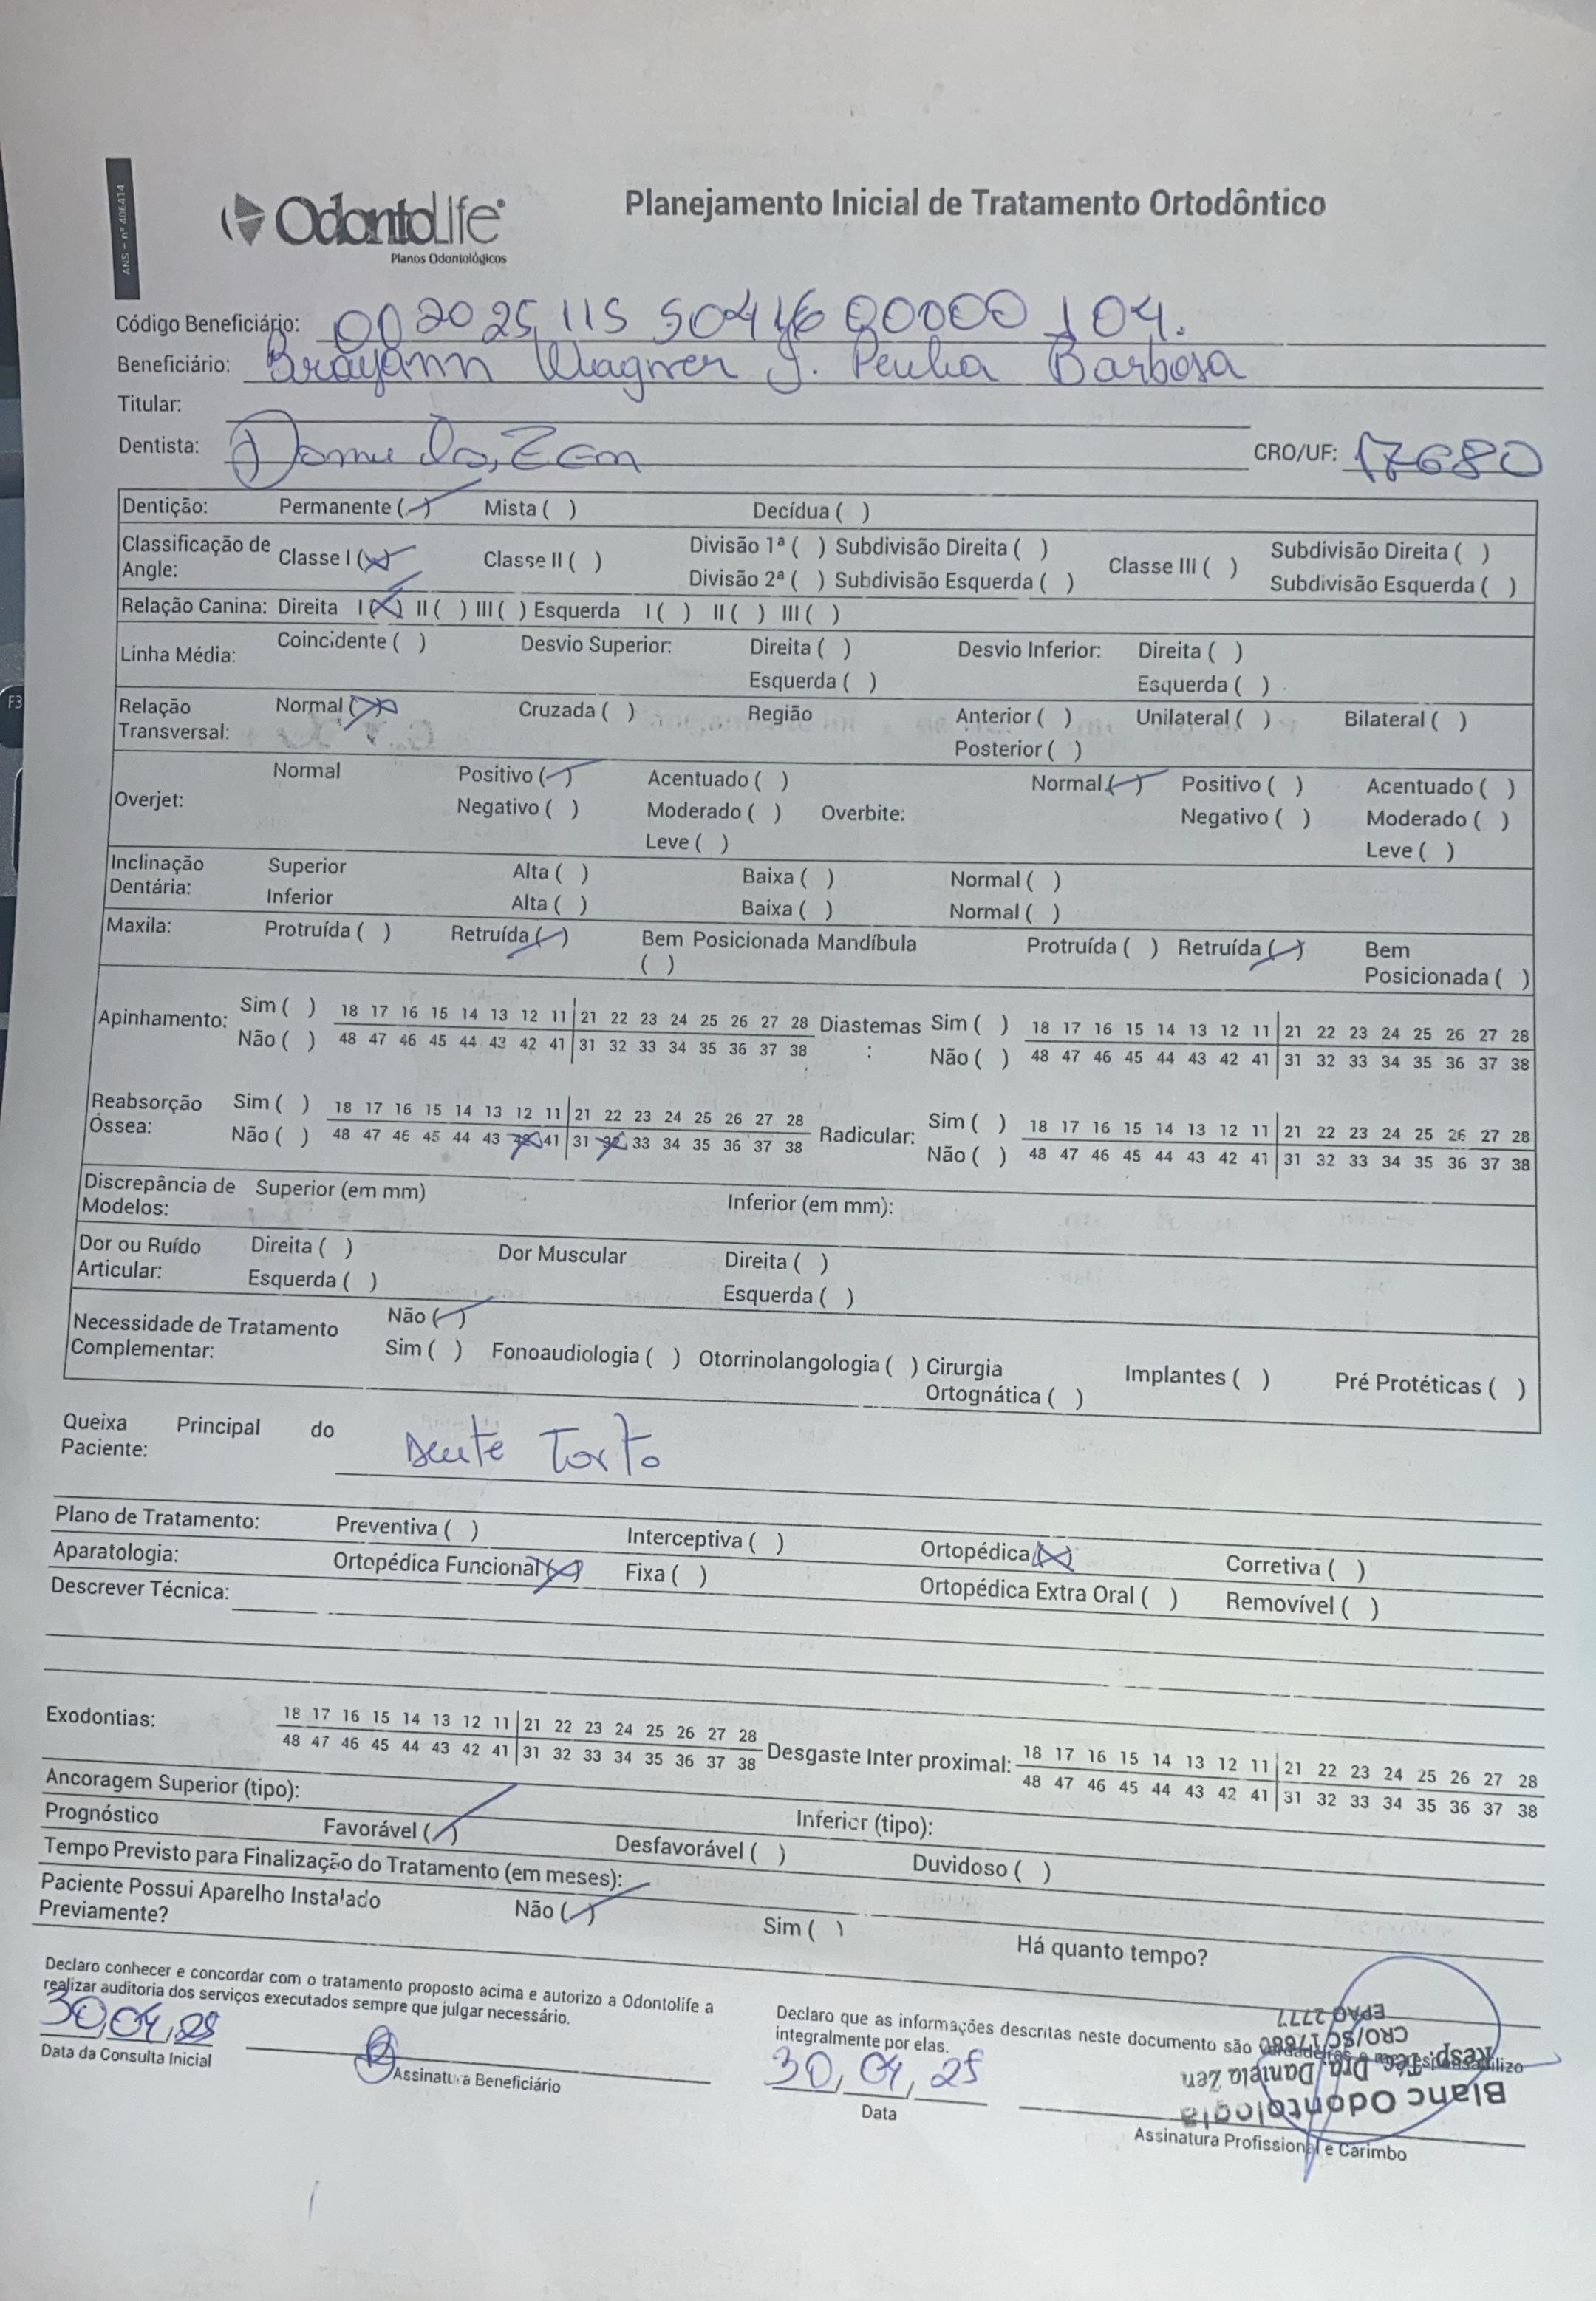 ANS – nº 406414
OdontoLife®
Planos Odontológicos
Planejamento Inicial de Tratamento Ortodôntico
Código Beneficiário: 002025 115 50416 00000 104.
Beneficiário: Brayann Wagner J. Penha Barbosa
Titular:
Dentista: Zen CRO/UF: 17680
Dentição: Permanente ( ) Mista ( ) Decídua ( )
Classificação de Angle: Classe I (X) Classe II ( ) Divisão 1ª ( ) Subdivisão Direita ( ) Classe III ( ) Subdivisão Direita ( )
Divisão 2ª ( ) Subdivisão Esquerda ( ) Subdivisão Esquerda ( )
Relação Canina: Direita I (X) II ( ) III ( ) Esquerda I ( ) II ( ) III ( )
Linha Média: Coincidente ( ) Desvio Superior: Direita ( ) Desvio Inferior: Direita ( )
Esquerda ( ) Esquerda ( )
Relação Transversal: Normal (X) Cruzada ( ) Região Anterior ( ) Unilateral ( ) Bilateral ( )
Posterior ( )
Overjet: Normal Positivo ( ) Acentuado ( ) Overbite: Normal ( ) Positivo ( ) Acentuado ( )
Negativo ( ) Moderado ( ) Negativo ( ) Moderado ( )
Leve ( ) Leve ( )
Inclinação Dentária: Superior Alta ( ) Baixa ( ) Normal ( )
Inferior Alta ( ) Baixa ( ) Normal ( )
Maxila: Protruída ( ) Retruída ( ) Bem Posicionada ( ) Mandíbula Protruída ( ) Retruída ( ) Bem Posicionada ( )
Apinhamento: Sim ( ) 18 17 16 15 14 13 12 11 21 22 23 24 25 26 27 28 Diastemas : Sim ( ) 18 17 16 15 14 13 12 11 21 22 23 24 25 26 27 28
Não ( ) 48 47 46 45 44 43 42 41 31 32 33 34 35 36 37 38 Não ( ) 48 47 46 45 44 43 42 41 31 32 33 34 35 36 37 38
Reabsorção Óssea: Sim ( ) 18 17 16 15 14 13 12 11 21 22 23 24 25 26 27 28 Radicular: Sim ( ) 18 17 16 15 14 13 12 11 21 22 23 24 25 26 27 28
Não ( ) 48 47 46 45 44 43 42 41 31 32 33 34 35 36 37 38 Não ( ) 48 47 46 45 44 43 42 41 31 32 33 34 35 36 37 38
Discrepância de Modelos: Superior (em mm) Inferior (em mm):
Dor ou Ruído Articular: Direita ( ) Dor Muscular Direita ( )
Esquerda ( ) Esquerda ( )
Necessidade de Tratamento Complementar: Não ( )
Sim ( ) Fonoaudiologia ( ) Otorrinolangologia ( ) Cirurgia Ortognática ( ) Implantes ( ) Pré Protéticas ( )
Queixa Principal do Paciente: Dente Torto
Plano de Tratamento: Preventiva ( ) Interceptiva ( ) Ortopédica (X) Corretiva ( )
Aparatologia: Ortopédica Funcional (X) Fixa ( ) Ortopédica Extra Oral ( ) Removível ( )
Descrever Técnica:
Exodontias: 18 17 16 15 14 13 12 11 21 22 23 24 25 26 27 28 Desgaste Inter proximal: 18 17 16 15 14 13 12 11 21 22 23 24 25 26 27 28
48 47 46 45 44 43 42 41 31 32 33 34 35 36 37 38 48 47 46 45 44 43 42 41 31 32 33 34 35 36 37 38
Ancoragem Superior (tipo): Inferior (tipo):
Prognóstico Favorável ( ) Desfavorável ( ) Duvidoso ( )
Tempo Previsto para Finalização do Tratamento (em meses):
Paciente Possui Aparelho Instalado Previamente? Não ( ) Sim ( ) Há quanto tempo?
Declaro conhecer e concordar com o tratamento proposto acima e autorizo a Odontolife a
realizar auditoria dos serviços executados sempre que julgar necessário.
Declaro que as informações descritas neste documento são verdadeiras e me responsabilizo
integralmente por elas.
30/04/25
Data da Consulta Inicial
Assinatura Beneficiário
30/04/25
Data
Blanc Odontologia
Resp. Téc. Dra. Daniela Zen
CRO/SC 17680
EPAO 2777
Assinatura Profissional e Carimbo